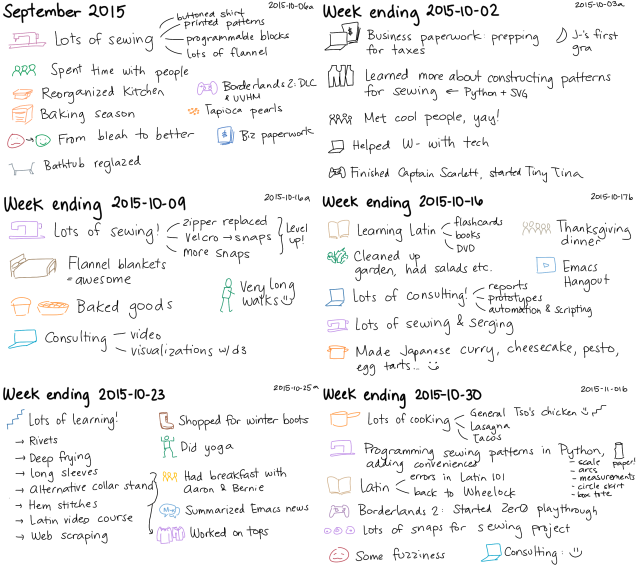 September 2015
2015-10-06a
Lots of sewing
buttoned shirt
printed patterns
programmable blocks
lots of flannel
Spent time with people
Reorganized Kitchen
Borderlands 2: DLC
& UVHM
Baking season
Tapioca pearls
From bleah to better
Biz paperwork
Bathtub reglazed
Week ending 2015-10-02
2015-10-03a
Business paperwork: prepping
for taxes
J-'s first
gra
Learned more about constructing patterns
for sewing ← Python + SVG
Met cool people, yay!
Helped W- with tech
Finished Captain Scarlett, started Tiny Tina
Week ending 2015-10-09
2015-10-16a
Lots of sewing!
zipper replaced
velcro → snaps
more snaps
Level
up!
Flannel blankets
= awesome
Very long
walks
Baked goods
Consulting
video
visualizations w/ d3
Week ending 2015-10-16
2015-10-17b
Learning Latin
flashcards
books
DVD
Thanksgiving
dinner
Cleaned up
garden, had salads etc.
Emacs
Hangout
Lots of consulting!
reports
prototypes
automation & scripting
Lots of sewing & serging
Made Japanese curry, cheesecake, pesto,
egg tarts...
Week ending 2015-10-23
2015-10-25a
Lots of learning!
→ Rivets
→ Deep frying
→ Long sleeves
→ alternative collar stand
→ Hem stitches
→ Latin video course
→ Web scraping
Shopped for winter boots
Did yoga
Had breakfast with
Aaron & Bernie
Summarized Emacs news
Worked on tops
Week ending 2015-10-30
2015-11-01b
Lots of cooking
General Tso's chicken
Lasagna
Tacos
Programming sewing patterns in Python,
adding conveniences
paper!
- scale
- arcs
- measurements
- circle skirt
- box tote
Latin
errors in Latin 101
back to Wheelock
Borderlands 2: Started Zer0 playthrough
Lots of snaps for sewing project
Some fuzziness
Consulting: